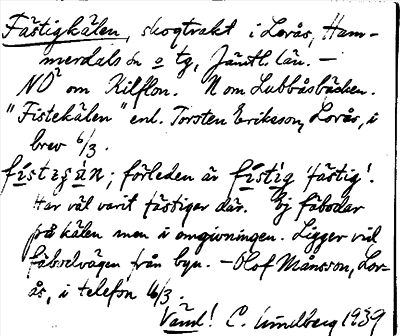 Fästigkälen, skogtrakt i Lorås, Ham-
merdals sn o tg, Jämtl. län. —
NO om Kilflon. N om Lubbåsbäcken.
"Fistekälen" enl. Torsten Eriksson, Lorås, i
brev 6/3.
förleden är 'fästig'.
Har väl varit fästigar där. Ej fäbodar
på kälen men i omgivningen. Ligger vid
fäbodvägen från byn. — Olof Månsson, Lor-
ås, i telefon 16/3.
Vänd! C. Lindberg 1939